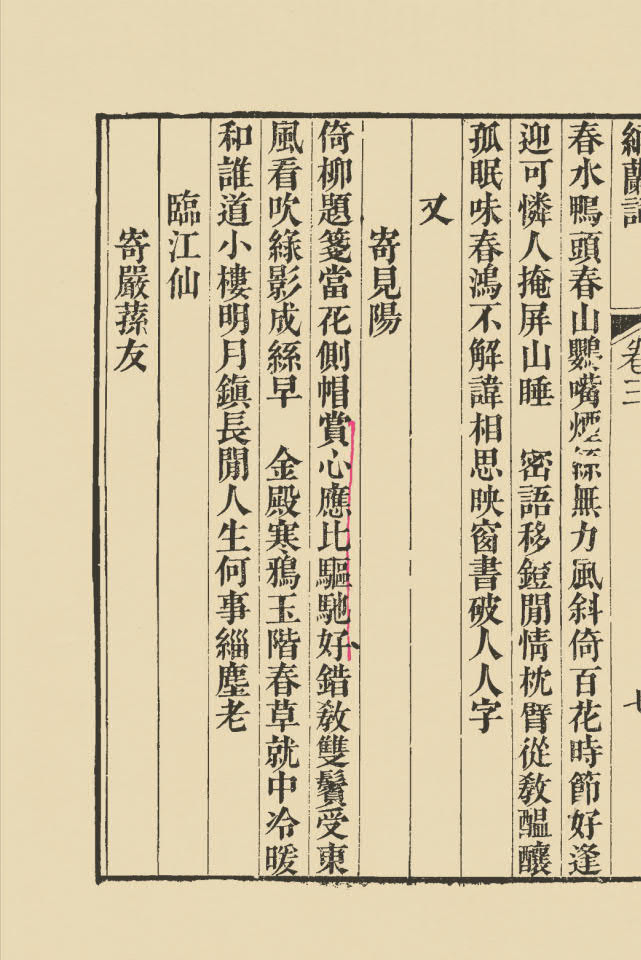 納蘭詞 卷三
春水鴨頭春山鸚嘴煙絲無力風斜倚百花時節好逢
迎可憐人掩屏山睡　密語移鐙閒情枕臂從敎醞釀
孤眠味春鴻不解諱相思映窗書破人人字
又
寄見陽
倚柳題箋當花側帽賞心應比驅馳好錯敎雙鬢受東
風看吹綠影成絲早　金殿寒鴉玉階春草就中冷暖
和誰道小樓明月鎮長閒人生何事緇塵老
臨江仙
寄嚴蓀友